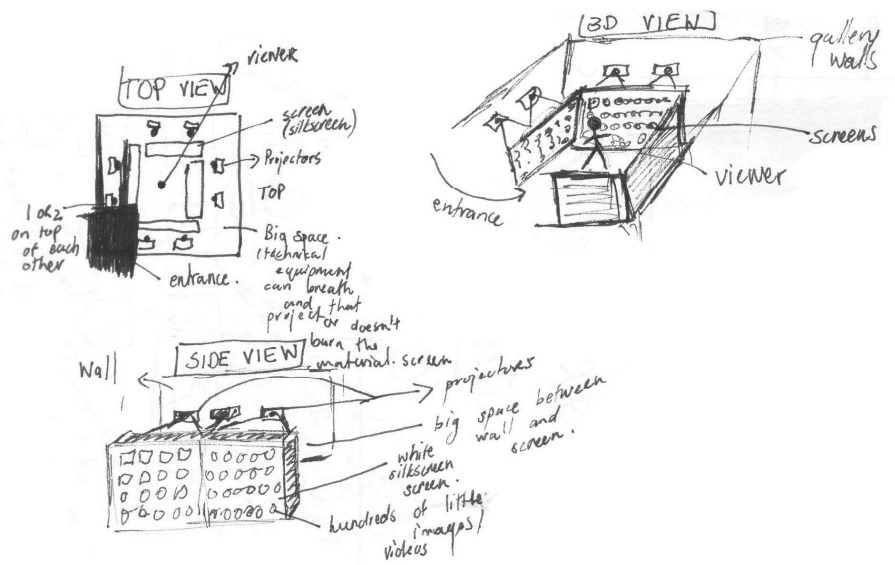 TOP VIEW
viewer
screen
(silkscreen)
Projectors
TOP
1 of 2
on top
of each
other
entrance.
Big space.
(technical
equipment
can breath
and that
projector doesn't
burn the
material screen
3D VIEW
gallery
walls
screens
viewer
entrance
SIDE VIEW
Wall
projectors
big space between
wall and
screen.
white
silkscreen
screen.
hundreds of little
images/
videos